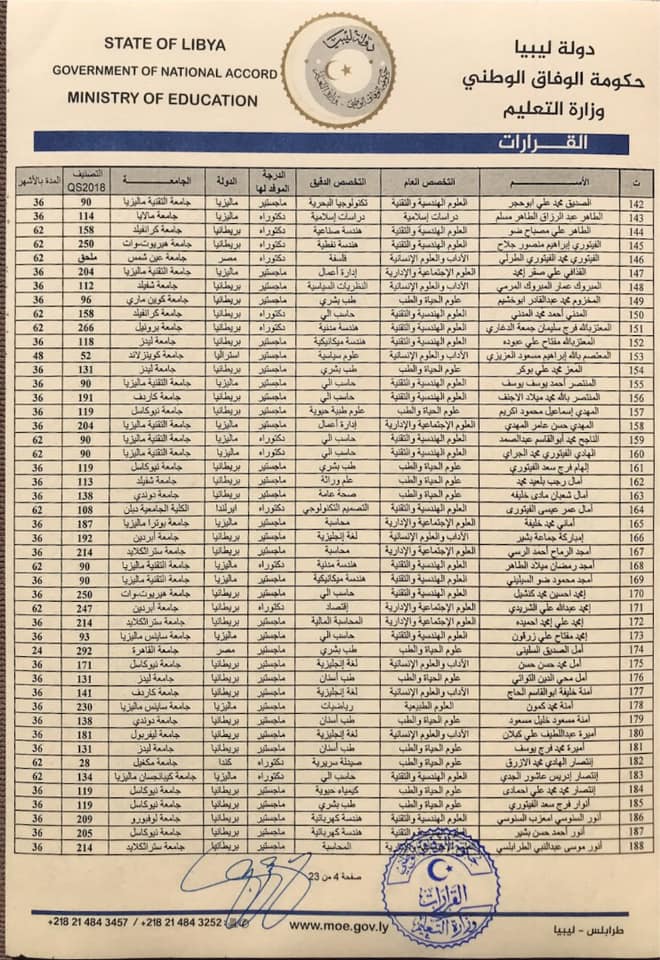 STATE OF LIBYA
GOVERNMENT OF NATIONAL ACCORD
MINISTRY OF EDUCATION
دولة ليبيا
حكومة الوفاق الوطني
وزارة التعليم
القرارات
ت الأســم التخصص العام التخصص الدقيق الدرجة الموفد لها الدولة الجامعــة التصنيف QS2018 المدة بالأشهر
142 الصديق محمد علي ابوحجر العلوم الهندسية والتقنية تكنولوجيا البحرية ماجستير ماليزيا جامعة التقنية ماليزيا 90 36
143 الطاهر عبد الرزاق الطاهر مسلم دراسات إسلامية دراسات إسلامية دكتوراه ماليزيا جامعة مالايا 114 36
144 الطاهر علي مصباح ضو العلوم الهندسية والتقنية هندسة صناعية دكتوراه بريطانيا جامعة كرانفيلد 158 62
145 الفيتوري إبراهيم منصور جلاح العلوم الهندسية والتقنية هندسة نفطية دكتوراه بريطانيا جامعة هيريوت-وات 250 62
146 الفيتوري محمد الفيتوري الطرلي الآداب والعلوم الإنسانية فلسفة دكتوراه مصر جامعة عين شمس ملحق 62
147 القذافي علي صقر إمحمد العلوم الإجتماعية والإدارية إدارة أعمال ماجستير ماليزيا جامعة التقنية ماليزيا 204 36
148 المبروك عمار المبروك المرمي الآداب والعلوم الإنسانية النظريات السياسية ماجستير بريطانيا جامعة شفيلد 112 36
149 المخزوم محمد عبدالقادر ابوخشيم علوم الحياة والطب طب بشري ماجستير بريطانيا جامعة كوين ماري 96 36
150 المدني أحمد محمد المدني العلوم الهندسية والتقنية حاسب الي دكتوراه بريطانيا جامعة كرانفيلد 158 62
151 المعتزبالله فرج سليمان جمعة الدغاري العلوم الهندسية والتقنية هندسة مدنية دكتوراه بريطانيا جامعة برونيل 266 62
152 المعتزبالله مفتاح علي عبوده العلوم الهندسية والتقنية هندسة ميكانيكية ماجستير بريطانيا جامعة ليدز 118 36
153 المعتصم بالله إبراهيم مسعود العزيزي الآداب والعلوم الإنسانية علوم سياسية ماجستير استراليا جامعة كوينزلاند 52 48
154 المعز محمد علي بوكر علوم الحياة والطب طب بشري ماجستير بريطانيا جامعة ليدز 131 36
155 المنتصر أحمد يوسف يوسف العلوم الهندسية والتقنية حاسب الي ماجستير ماليزيا جامعة التقنية ماليزيا 90 36
156 المنتصر بالله محمد ميلاد الاجنف العلوم الهندسية والتقنية حاسب الي ماجستير بريطانيا جامعة كاردف 191 36
157 المهدي إسماعيل محمود اكريم علوم الحياة والطب علوم طبية حيوية ماجستير بريطانيا جامعة نيوكاسل 119 36
158 المهدي حسن عامر المهدي العلوم الإجتماعية والإدارية إدارة أعمال ماجستير ماليزيا جامعة التقنية ماليزيا 204 36
159 الناجح محمد أبوالقاسم عبدالصمد العلوم الهندسية والتقنية حاسب الي دكتوراه ماليزيا جامعة التقنية ماليزيا 90 62
160 الهادي الفيتوري محمد الجراي العلوم الهندسية والتقنية حاسب الي دكتوراه ماليزيا جامعة التقنية ماليزيا 90 62
161 إلهام فرج سعد الفيتوري علوم الحياة والطب طب بشري ماجستير بريطانيا جامعة نيوكاسل 119 36
162 أمال رجب بلعيد محمد علوم الحياة والطب علم وراثة ماجستير بريطانيا جامعة شفيلد 113 36
163 أمال شعبان مادى خليفه علوم الحياة والطب صحة عامة ماجستير بريطانيا جامعة دوندي 138 36
164 أمال عمر عيسى الفيتورى العلوم الهندسية والتقنية التصميم التكنولوجي دكتوراه ايرلندا الكلية الجامعية دبلن 108 62
165 أماني محمد خليفة العلوم الإجتماعية والإدارية محاسبة ماجستير ماليزيا جامعة بوترا ماليزيا 187 36
166 إمباركة جماعة بشير الآداب والعلوم الإنسانية لغة إنجليزية ماجستير بريطانيا جامعة أبردين 192 36
167 أمجد الرماح أحمد الرسي العلوم الإجتماعية والإدارية محاسبة ماجستير بريطانيا جامعة ستراثكلايد 214 36
168 أمجد رمضان ميلاد الطاهر العلوم الهندسية والتقنية هندسة مدنية دكتوراه ماليزيا جامعة التقنية ماليزيا 90 62
169 أمجد محمود ضو السيليني العلوم الهندسية والتقنية هندسة ميكانيكية ماجستير ماليزيا جامعة التقنية ماليزيا 90 36
170 إمحمد احسين محمد كنشيل العلوم الهندسية والتقنية حاسب الي ماجستير بريطانيا جامعة هيريوت-وات 250 36
171 إمحمد عبدالله علي الشريدي العلوم الإجتماعية والإدارية إقتصاد دكتوراه بريطانيا جامعة أبردين 247 62
172 إمحمد علي إمحمد احميده العلوم الإجتماعية والإدارية المحاسبة المالية ماجستير بريطانيا جامعة ستراثكلايد 214 36
173 إمحمد مفتاح علي زرقون العلوم الهندسية والتقنية حاسب الي ماجستير ماليزيا جامعة ساينس ماليزيا 93 36
174 أمل الصديق السليني علوم الحياة والطب طب بشري ماجستير مصر جامعة القاهرة 292 24
175 أمل محمد حسن حسن الآداب والعلوم الإنسانية لغة إنجليزية ماجستير بريطانيا جامعة نيوكاسل 171 36
176 أمل محي الدين التواتي علوم الحياة والطب طب أسنان ماجستير بريطانيا جامعة ليدز 131 36
177 أمنة خليفة ابوالقاسم الحاج الآداب والعلوم الإنسانية لغة إنجليزية ماجستير بريطانيا جامعة كاردف 141 36
178 أمنة محمد كمون العلوم الطبيعية رياضيات ماجستير ماليزيا جامعة ساينس ماليزيا 230 36
179 أمنة مسعود خليل مسعود علوم الحياة والطب طب أسنان ماجستير بريطانيا جامعة دوندي 138 36
180 أميرة عبداللطيف علي كبلان الآداب والعلوم الإنسانية لغة إنجليزية ماجستير بريطانيا جامعة ليفربول 181 36
181 أميرة محمد فرج يوسف علوم الحياة والطب طب أسنان ماجستير بريطانيا جامعة ليدز 131 36
182 إنتصار الهادي محمد الازرق علوم الحياة والطب صيدلة سريرية دكتوراه كندا جامعة مكغيل 28 62
183 إنتصار إدريس عاشور الجدي العلوم الهندسية والتقنية حاسب الي دكتوراه ماليزيا جامعة كيبانجسان ماليزيا 134 62
184 إنتصار محمد محمد علي احمادى علوم الحياة والطب كيمياء حيوية ماجستير بريطانيا جامعة نيوكاسل 119 36
185 أنوار فرج سعد الفيتوري علوم الحياة والطب طب بشري ماجستير بريطانيا جامعة نيوكاسل 119 36
186 أنور السنوسي امعزب السنوسي العلوم الهندسية والتقنية هندسة كهربائية ماجستير بريطانيا جامعة لوفبورو 209 36
187 أنور أحمد حسن بشير العلوم الهندسية والتقنية هندسة كهربائية ماجستير بريطانيا جامعة نيوكاسل 205 36
188 أنور موسى عبدالنبي الطرابلسي العلوم الإجتماعية والإدارية المحاسبة ماجستير بريطانيا جامعة ستراثكلايد 214 36
صفحة 4 من 23
القرارات
وزارة التعليم
+218 21 484 3457 / +218 21 484 3252
www.moe.gov.ly
طرابلس - ليبيا